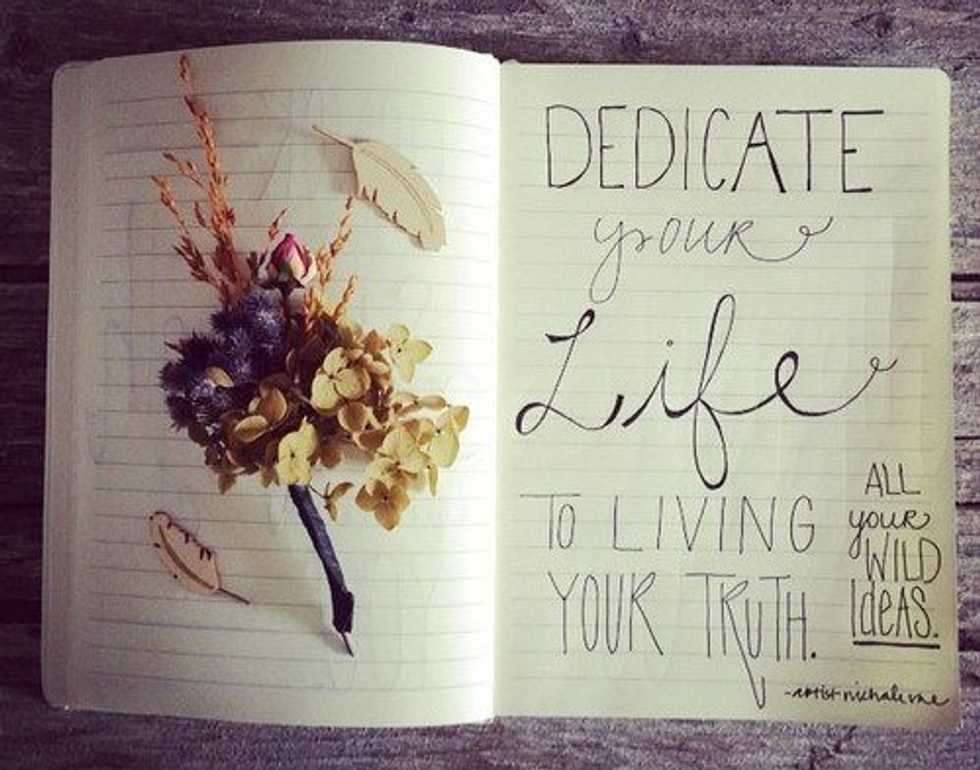 DEDICATE
your
Life
TO LIVING
YOUR TRUTH.
ALL
your
WILD
IdeAS.
-artist